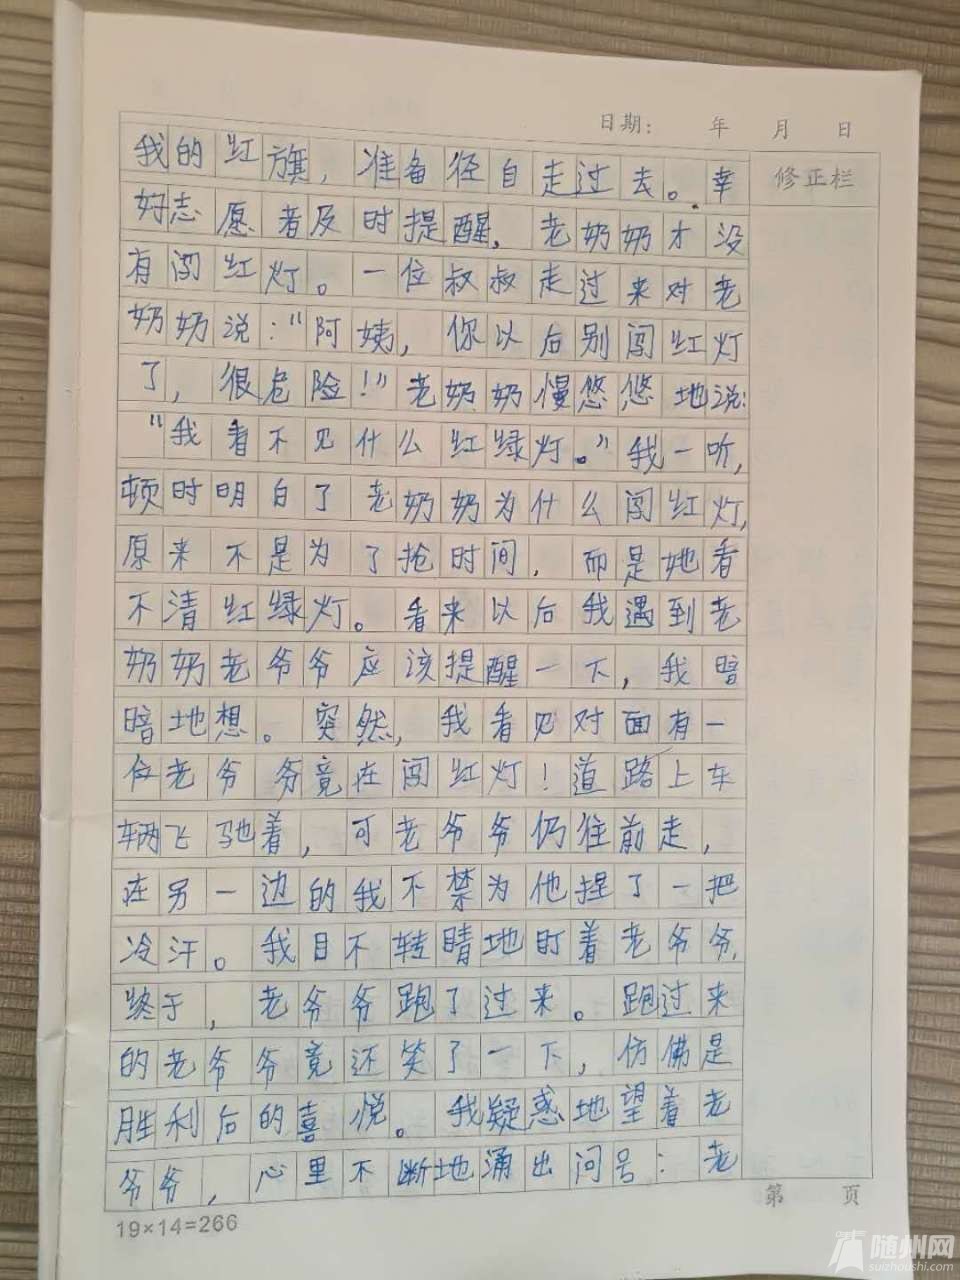 日期： 年 月 日
修正栏
我的红旗，准备径自走过去。幸
好志愿者及时提醒，老奶奶才没
有闯红灯。一位叔叔走过来对老
奶奶说：“阿姨，你以后别闯红灯
了，很危险！”老奶奶慢悠悠地说：
“我看不见什么红绿灯。”我一听，
顿时明白了老奶奶为什么闯红灯，
原来不是为了抢时间，而是她看
不清红绿灯。看来以后我遇到老
奶奶老爷爷应该提醒一下，我暗
暗地想。突然，我看见对面有一
位老爷爷竟在闯红灯！道路上车
辆飞驰着，可老爷爷仍往前走，
在另一边的我不禁为他捏了一把
冷汗。我目不转睛地盯着老爷爷，
终于，老爷爷跑了过来。跑过来
的老爷爷竟还笑了一下，仿佛是
胜利后的喜悦。我疑惑地望着老
爷爷，心里不断地涌出问号：老
第 页
19×14=266
随州网
suizhoushi.com